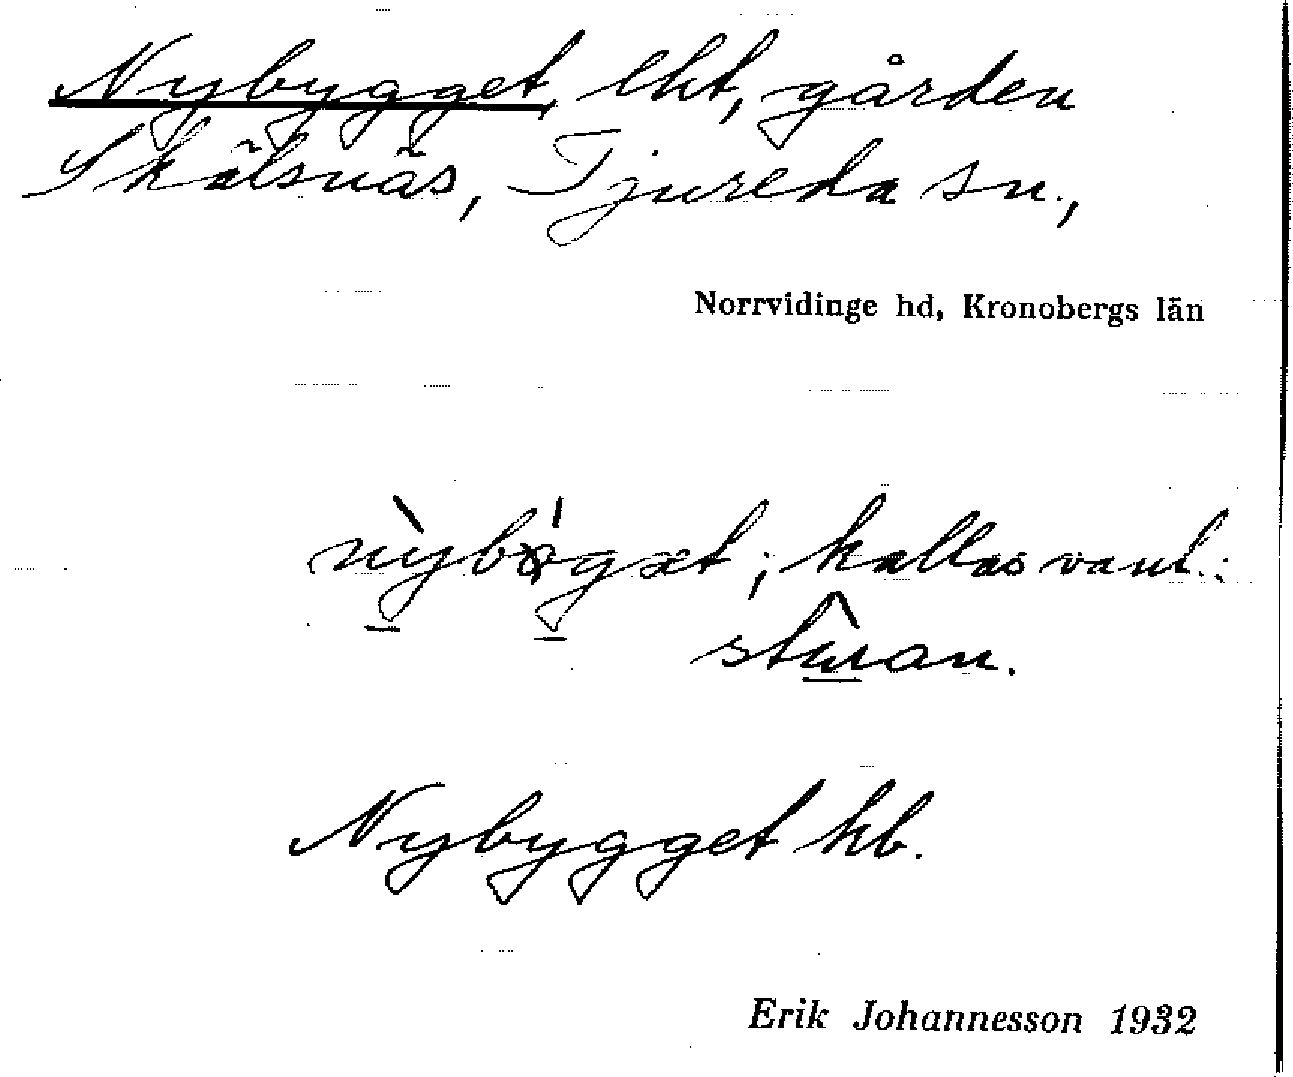 Nybygget, lht, gården
Skälsnäs, Tjureda sn.,
Norrvidinge hd, Kronobergs län
kallas vanl.:
Nybygget hb.
Erik Johannesson 1932